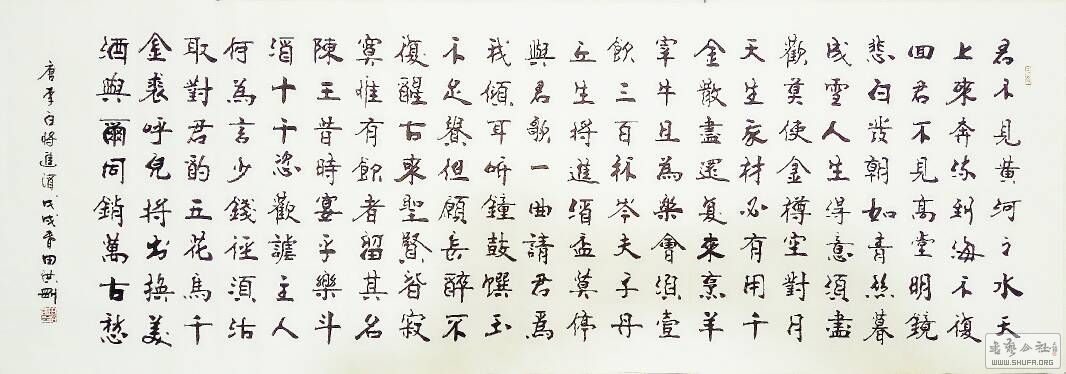 君不見黃河之水天
上來奔流到海不復
回君不見高堂明鏡
悲白發朝如青絲暮
成雪人生得意須盡
歡莫使金樽空對月
天生我材必有用千
金散盡還復來烹羊
宰牛且為樂會須壹
飲三百杯岑夫子丹
丘生將進酒盃莫停
與君歌一曲請君為
我傾耳听鐘鼓饌玉
不足貴但願長醉不
復醒古來聖賢皆寂
寞惟有飲者留其名
陳王昔時宴平樂斗
酒十千恣歡謔主人
何為言少錢徑須沽
取對君酌五花馬千
金裘呼兒將出換美
酒與爾同銷萬古愁
唐李白將進酒戊戌春田洪剛
書藝公社
WWW.SHUFA.ORG